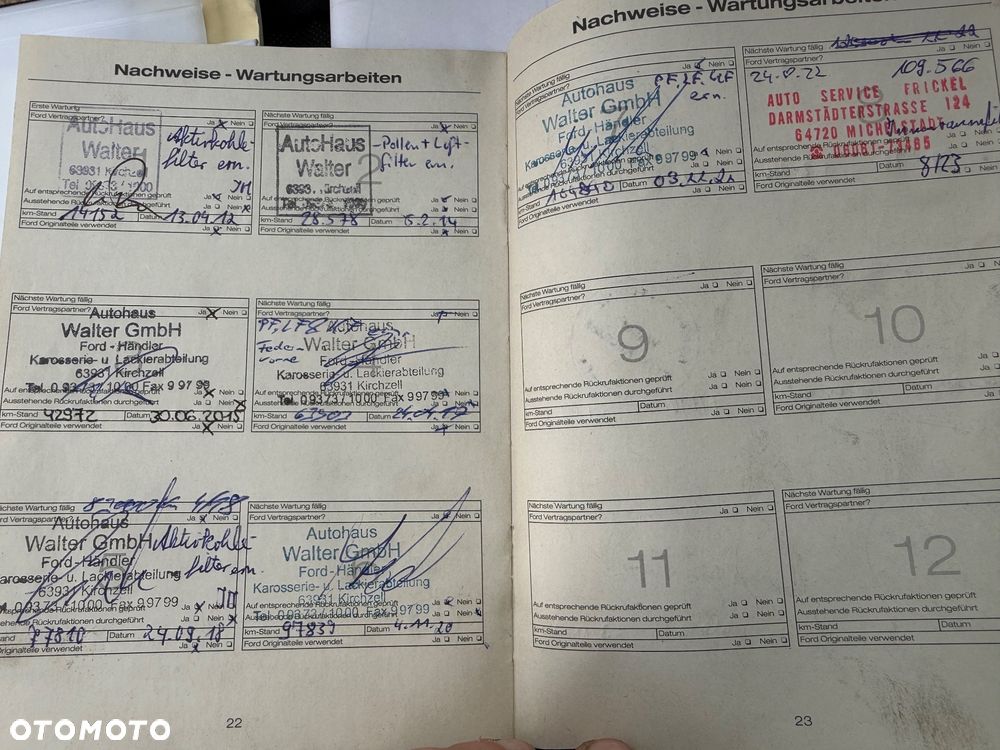 Nachweise - Wartungsarbeiten
Erste Wartung
Ford Vertragspartner? Ja Nein
AutoHaus
Walter
63931 Kirchzell
Aktivkohle-
filter ern.
Auf entsprechende Rückrufaktionen geprüft Ja Nein
Ausstehende Rückrufaktionen durchgeführt Ja Nein
km-Stand 14152 Datum 13.04.12
Ford Originalteile verwendet Ja Nein
Nächste Wartung fällig
Ford Vertragspartner? Ja Nein
AutoHaus
Walter
Kirchzell
2
-Pollen + Luft-
filter ern.
Auf entsprechende Rückrufaktionen geprüft Ja Nein
Ausstehende Rückrufaktionen durchgeführt Ja Nein
km-Stand 28.578 Datum 6.2.14
Ford Originalteile verwendet Ja Nein
Nächste Wartung fällig
Ford Vertragspartner? Ja Nein
Autohaus
Walter GmbH
Ford - Händler
Karosserie- u. Lackierabteilung
63931 Kirchzell
Tel. 0 93 73 / 10 00 Fax 9 97 99
Auf entsprechende Rückrufaktionen geprüft Ja Nein
Ausstehende Rückrufaktionen durchgeführt Ja Nein
km-Stand 42972 Datum 30.06.2015
Ford Originalteile verwendet Ja Nein
Nächste Wartung fällig
Ford Vertragspartner? Ja Nein
PF, LF
Feder
vorne
Autohaus
Walter GmbH
Ford-Händler
Karosserie- u. Lackierabteilung
63931 Kirchzell
Tel. 0 93 73 / 10 00 Fax 9 97 99
Auf entsprechende Rückrufaktionen geprüft Ja Nein
Ausstehende Rückrufaktionen durchgeführt Ja Nein
km-Stand Datum
Ford Originalteile verwendet Ja Nein
Ford Vertragspartner? Ja Nein
Autohaus
Walter GmbH
Ford - Händler
Karosserie- u. Lackierabteilung
63931 Kirchzell
0 93 73 / 10 00 Fax 9 97 99
Aktivkohle-
filter ern.
entsprechende Rückrufaktionen geprüft Ja Nein
Ausstehende Rückrufaktionen durchgeführt Ja Nein
77810 Datum 24.09.18
Ford Originalteile verwendet Ja Nein
Nächste Wartung fällig
Ford Vertragspartner? Ja Nein
Autohaus
Walter GmbH
Ford - Händler
Karosserie- u. Lackierabteilung
63931 Kirchzell
Tel. 0 93 73 / 10 00 Fax 9 97 99
Auf entsprechende Rückrufaktionen geprüft Ja Nein
Ausstehende Rückrufaktionen durchgeführt Ja Nein
km-Stand 97839 Datum 4.11.20
Ford Originalteile verwendet Ja Nein
22
Nachweise - Wartungsarbeiten
Nächste Wartung fällig Ja Nein
Ford Vertragspartner?
Autohaus
Walter GmbH
Ford - Händler
Karosserie- u. Lackierabteilung
63931 Kirchzell
PF, LF,
ern.
Auf entsprechende Rückrufaktionen geprüft Ja Nein
Ausstehende Rückrufaktionen durchgeführt Ja Nein
km-Stand Datum 03.11.21
Ford Originalteile verwendet Ja Nein
Nächste Wartung fällig
Ford Vertragspartner? Ja Nein
109.566
AUTO SERVICE FRICKEL
DARMSTÄDTERSTRASSE 124
64720 MICHELSTADT
8/23
km-Stand
Ford Originalteile verwendet
Nächste Wartung fällig
Ford Vertragspartner? Ja Nein
9
Auf entsprechende Rückrufaktionen geprüft Ja Nein
Ausstehende Rückrufaktionen durchgeführt Ja Nein
km-Stand Datum
Ford Originalteile verwendet Ja Nein
Nächste Wartung fällig
Ford Vertragspartner? Ja Nein
10
Auf entsprechende Rückrufaktionen geprüft Ja
Ausstehende Rückrufaktionen durchgeführt Ja
km-Stand Datum
Ford Originalteile verwendet Ja
Nächste Wartung fällig
Ford Vertragspartner? Ja Nein
11
Auf entsprechende Rückrufaktionen geprüft Ja Nein
Ausstehende Rückrufaktionen durchgeführt Ja Nein
km-Stand Datum
Ford Originalteile verwendet Ja Nein
Nächste Wartung fällig
Ford Vertragspartner?
12
Auf entsprechende Rückrufaktionen geprüft
Ausstehende Rückrufaktionen durchgeführt
km-Stand Datum
Ford Originalteile verwendet
23
OTOMOTO